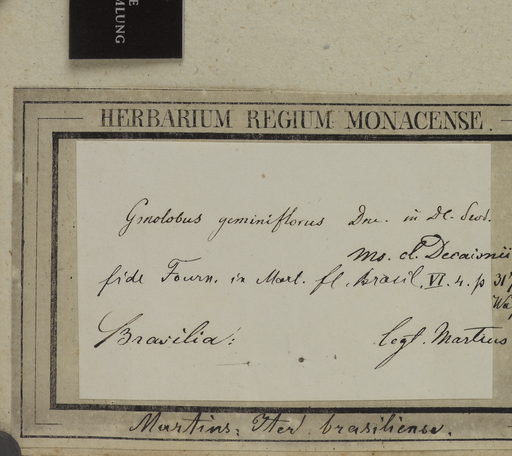 E
MLUNG
HERBARIUM REGIUM MONACENSE.
Gonolobus geminiflorus Dne. in DC.
Ms. cl. Decaisnii
fide Fourn. in Mart. fl. brasil. VI. 4. p 317
Brasilia: legt. Martius
Martius: Iter brasiliense.